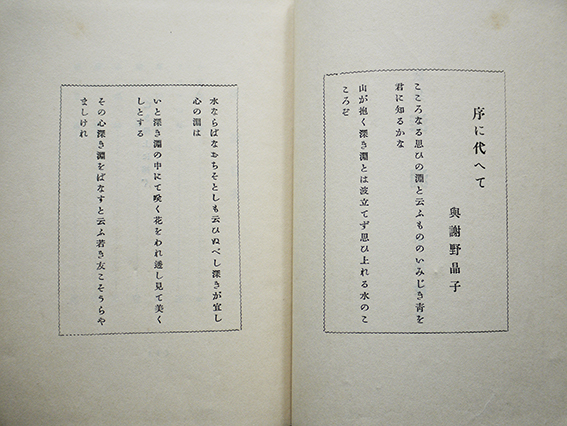 序に代へて
與謝野晶子
こころなる思ひの淵と云ふもののいみじき青を
君に知るかな
山が抱く深き淵とは波立てず思ひ上れる水のこ
ころぞ
水ならばなおちそとしも云ひぬべし深きが宜し
心の淵は
いと深き淵の中にて咲く花をわれ透し見て美く
しとする
その心深き淵をばなすと云ふ若き友こそうらや
ましけれ